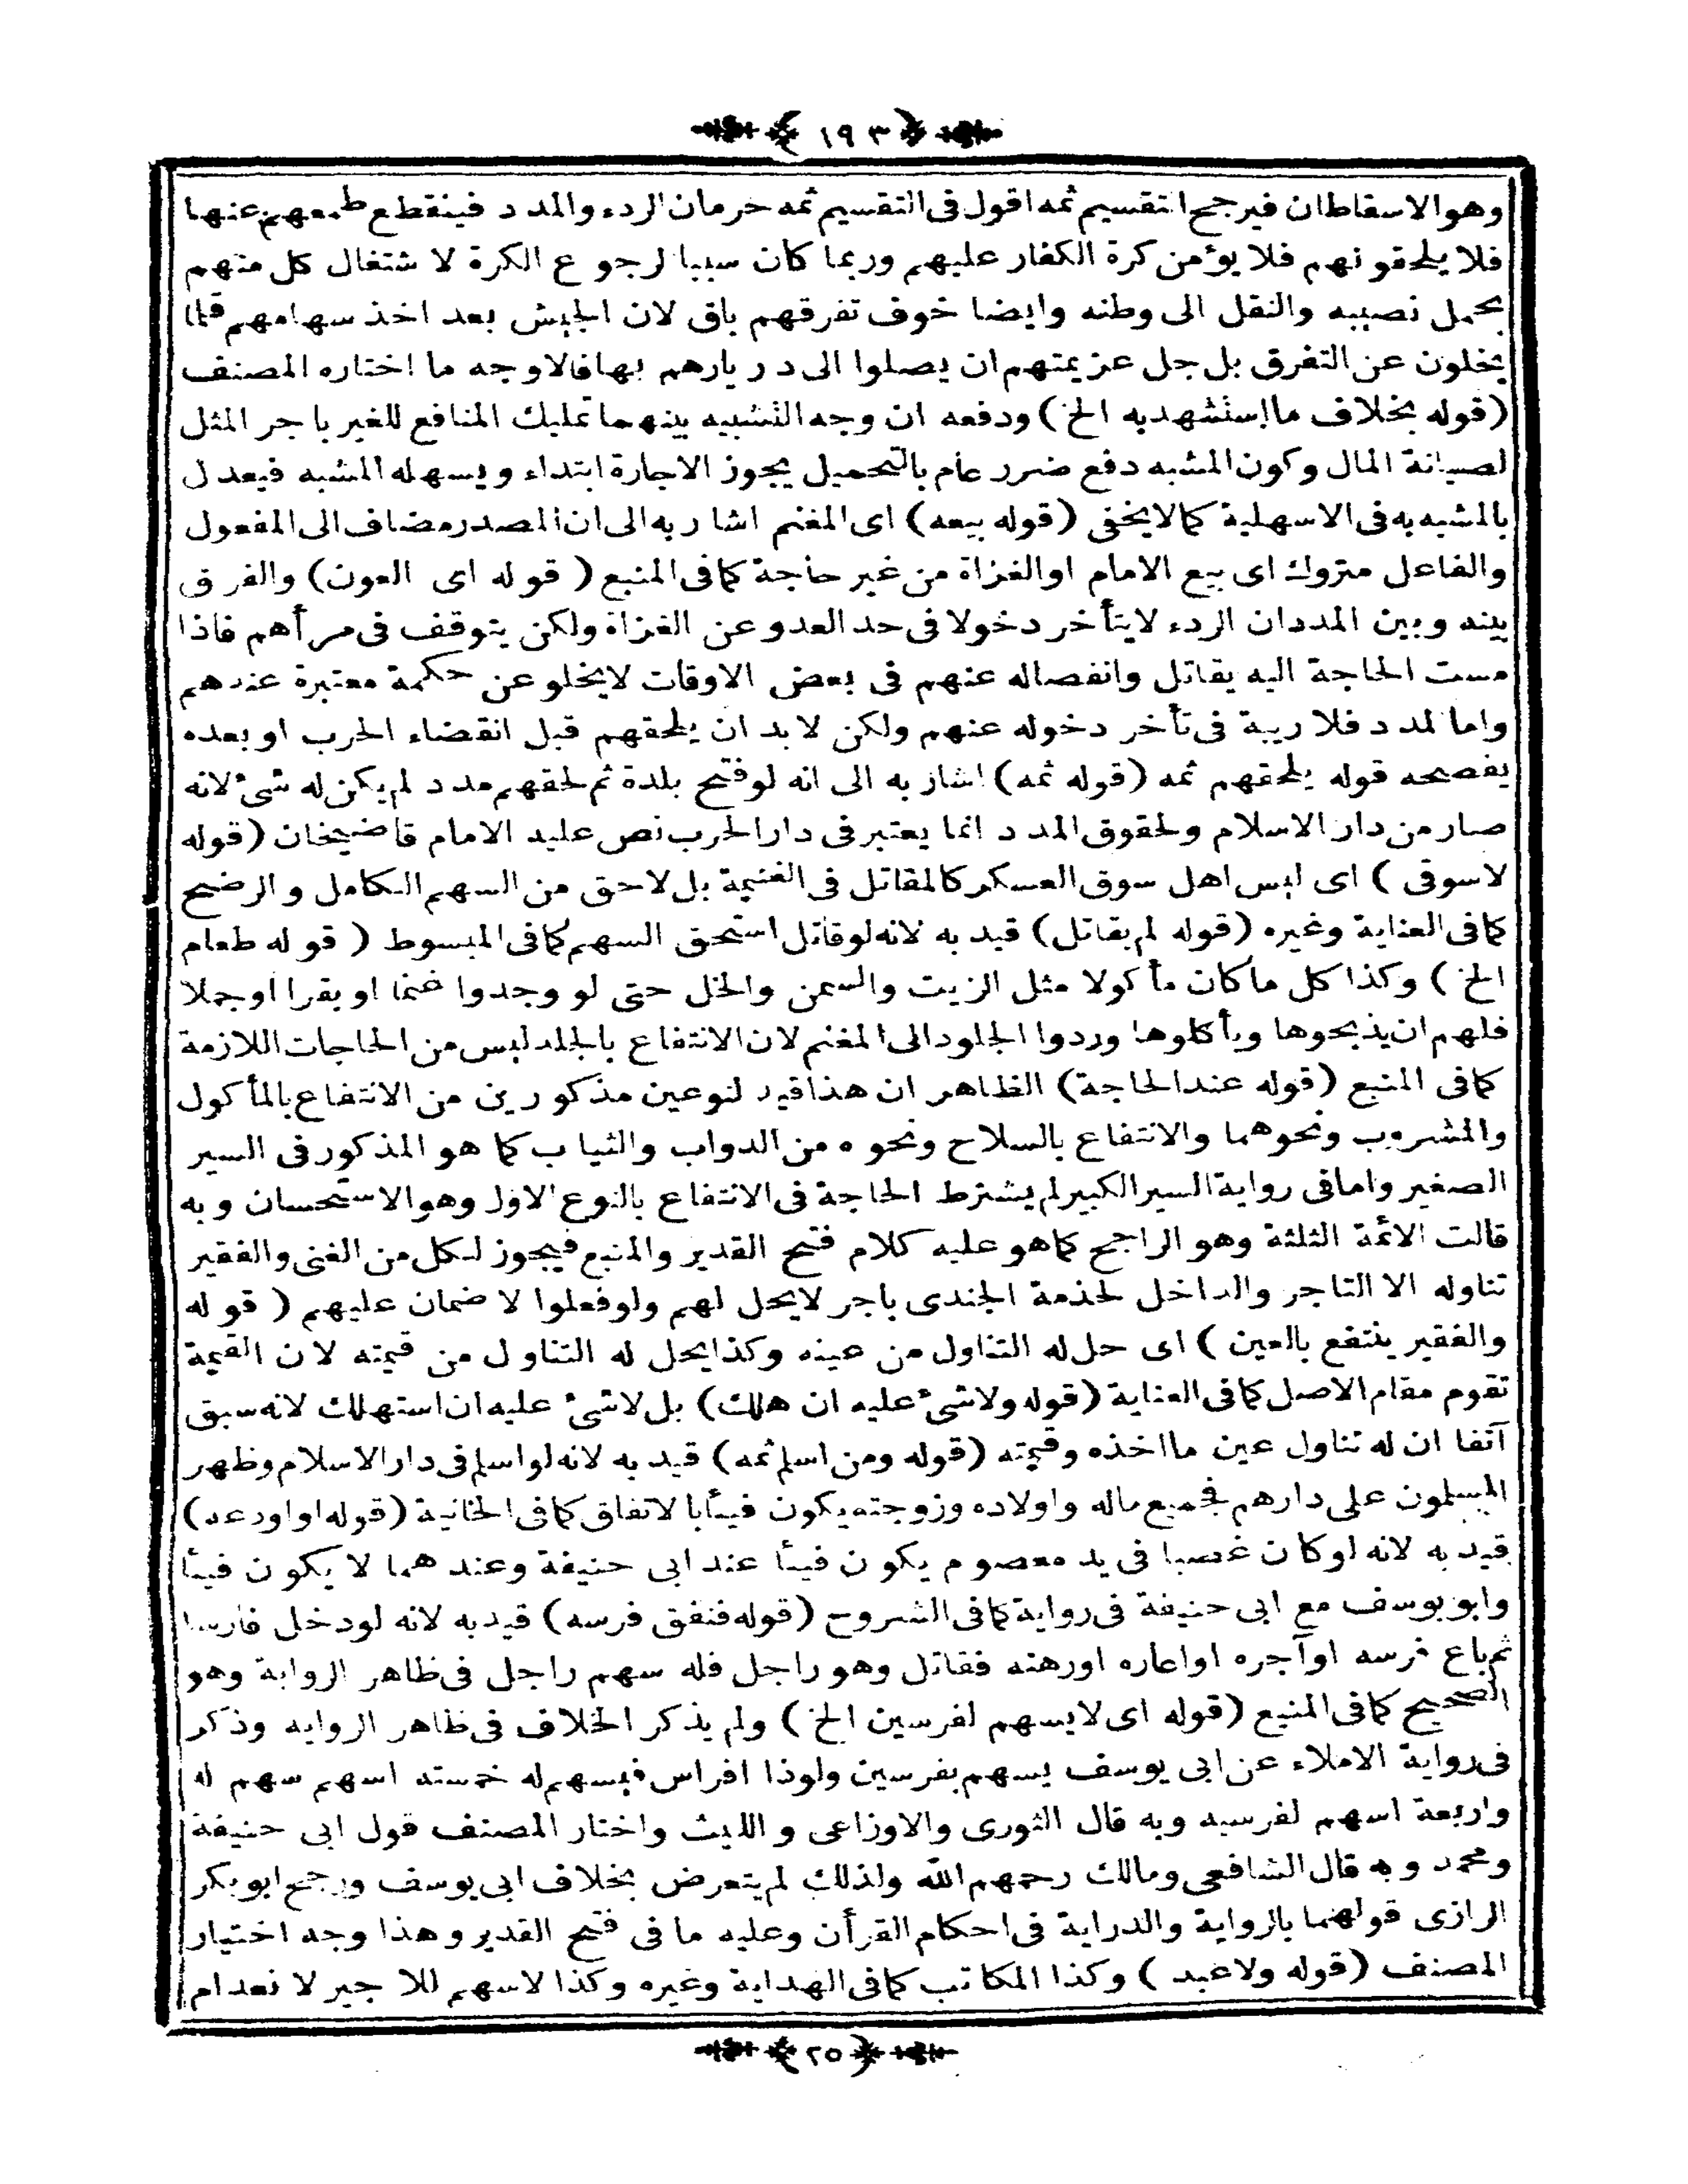 ١٩٣
وهو الاسقاطان فيرجح التقسيم ثمه اقول فى التقسيم ثمه حرمان الردء والمدد فينقطع طمعهم عنها
فلا يلحقونهم فلا يؤمن كرة الكفار عليهم وربما كان سببا لرجوع الكرة لاشتغال كل منهم
بحمل نصيبه والنقل الى وطنه وايضا خوف تفرقهم باق لان الجيش بعد اخذ سهامهم قلما
يخلون عن التفرق بل جل عزيمتهم ان يصلوا الى ديارهم بها فالاوجه ما اختاره المصنف
(قوله بخلاف ما استشهد به الخ) ودفعه ان وجه التشبيه بينهما تمليك المنافع للغير باجر المثل
لصيانة المال وكون المشبه دفع ضرر عام بالتحميل يجوز الاجارة ابتداء ويسهله المشبه فيعدل
بالمشبه به فى الاسهلية كما لا يخفى (قوله بيعه) اى المغنم اشار به الى ان المصدر مضاف الى المفعول
والفاعل متروك اى بيع الامام او الغزاة من غير حاجة كما فى المنبع (قوله اى العون) والفرق
بينه وبين المدد ان الردء لايتأخر دخولا فى حد العدو عن الغزاة ولكن يتوقف فى مرأهم فاذا
مست الحاجة اليه يقاتل وانفصاله عنهم فى بعض الاوقات لايخلو عن حكمة معتبرة عندهم
واما لمدد فلا ريبة فى تأخر دخوله عنهم ولكن لا بد ان يلحقهم قبل انقضاء الحرب او بعده
يفصحه قوله يلحقهم ثمه (قوله ثمه) اشار به الى انه لو فتح بلدة ثم لحقهم مدد لم يكن له شئ لانه
صار من دار الاسلام ولحقوق المدد انما يعتبر فى دار الحرب نص عليه الامام قاضيخان (قوله
لاسوقى) اى ليس اهل سوق العسكر كالمقاتل فى الغنيمة بل لاحق من السهم الكامل والرضح
كما فى العناية وغيره (قوله لم يقاتل) قيد به لانه لو قاتل استحق السهم كما فى المبسوط (قوله طعام
الخ) وكذا كل ما كان مأكولا مثل الزيت والسمن والخل حتى لو وجدوا غنما او بقرا او جملا
فلهم ان يذبحوها ويأكلوها وردوا الجلود الى المغنم لان الانتفاع بالجلد ليس من الحاجات اللازمة
كما فى المنبع (قوله عند الحاجة) الظاهر ان هذا قيد لنوعين مذكورين من الانتفاع بالمأكول
والمشروب ونحوهما والانتفاع بالسلاح ونحوه من الدواب والثياب كما هو المذكور فى السير
الصغير واما فى رواية السير الكبير لم يشترط الحاجة فى الانتفاع بالنوع الاول وهو الاستحسان وبه
قالت الائمة الثلثة وهو الراجح كما هو عليه كلام فتح القدير والمنبع فيجوز لكل من الغنى والفقير
تناوله الا التاجر والداخل لخذمة الجندى باجر لايحل لهم ولو فعلوا لا ضمان عليهم (قوله
والفقير ينتفع بالعين) اى حل له التناول من عينه وكذا يحل له التناول من قيمته لان القيمة
تقوم مقام الاصل كما فى العناية (قوله ولا شئ عليه ان هلك) بل لاشئ عليه ان استهلك لانه سبق
آنفا ان له تناول عين ما اخذه وقيمته (قوله ومن اسلم ثمه) قيد به لانه لو اسلم فى دار الاسلام وظهر
المسلمون على دارهم فجميع ماله واولاده وزوجته يكون فيئا بالاتفاق كما فى الخانية (قوله او اودعه)
قيد به لانه لو كان غصبا فى يد معصوم يكون فيئا عند ابى حنيفة وعندهما لا يكون فيئا
وابو يوسف مع ابى حنيفة فى رواية كما فى الشروح (قوله فنفق فرسه) قيد به لانه لو دخل فارسا
ثم باع فرسه او آجره او اعاره او رهنه فقاتل وهو راجل فله سهم راجل فى ظاهر الرواية وهو
الصحيح كما فى المنبع (قوله اى لايسهم لفرسين الخ) ولم يذكر الخلاف فى ظاهر الرواية وذكر
فى رواية الاملاء عن ابى يوسف يسهم بفرسين ولو ذا افراس فيسهم له خمسته اسهم سهم له
واربعة اسهم لفرسيه وبه قال الثورى والاوزاعى والليث واختار المصنف قول ابى حنيفة
ومحمد وبه قال الشافعى ومالك رحمهم الله ولذلك لم يتعرض بخلاف ابى يوسف ورجح ابو بكر
الرازى قولهما بالرواية والدراية فى احكام القرأن وعليه ما فى فتح القدير وهذا وجه اختيار
المصنف (قوله ولا عبد) وكذا المكاتب كما فى الهداية وغيره وكذا لاسهم للاجير لانعدام
٢٥